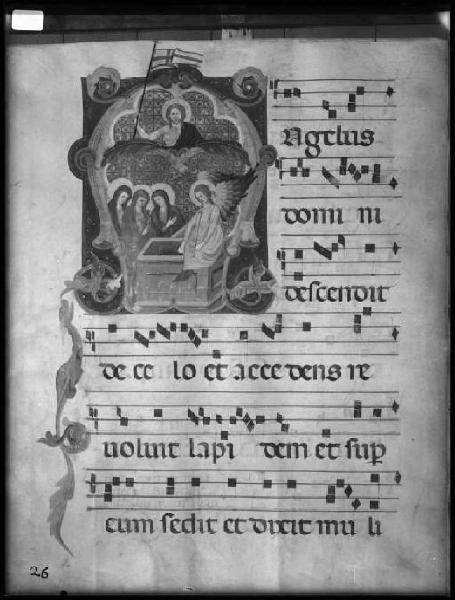 Angelus
domi ni
descendit
de ce lo et accedens re
uoluit lapi dem et sup
eum sedit et dixit mu li
26